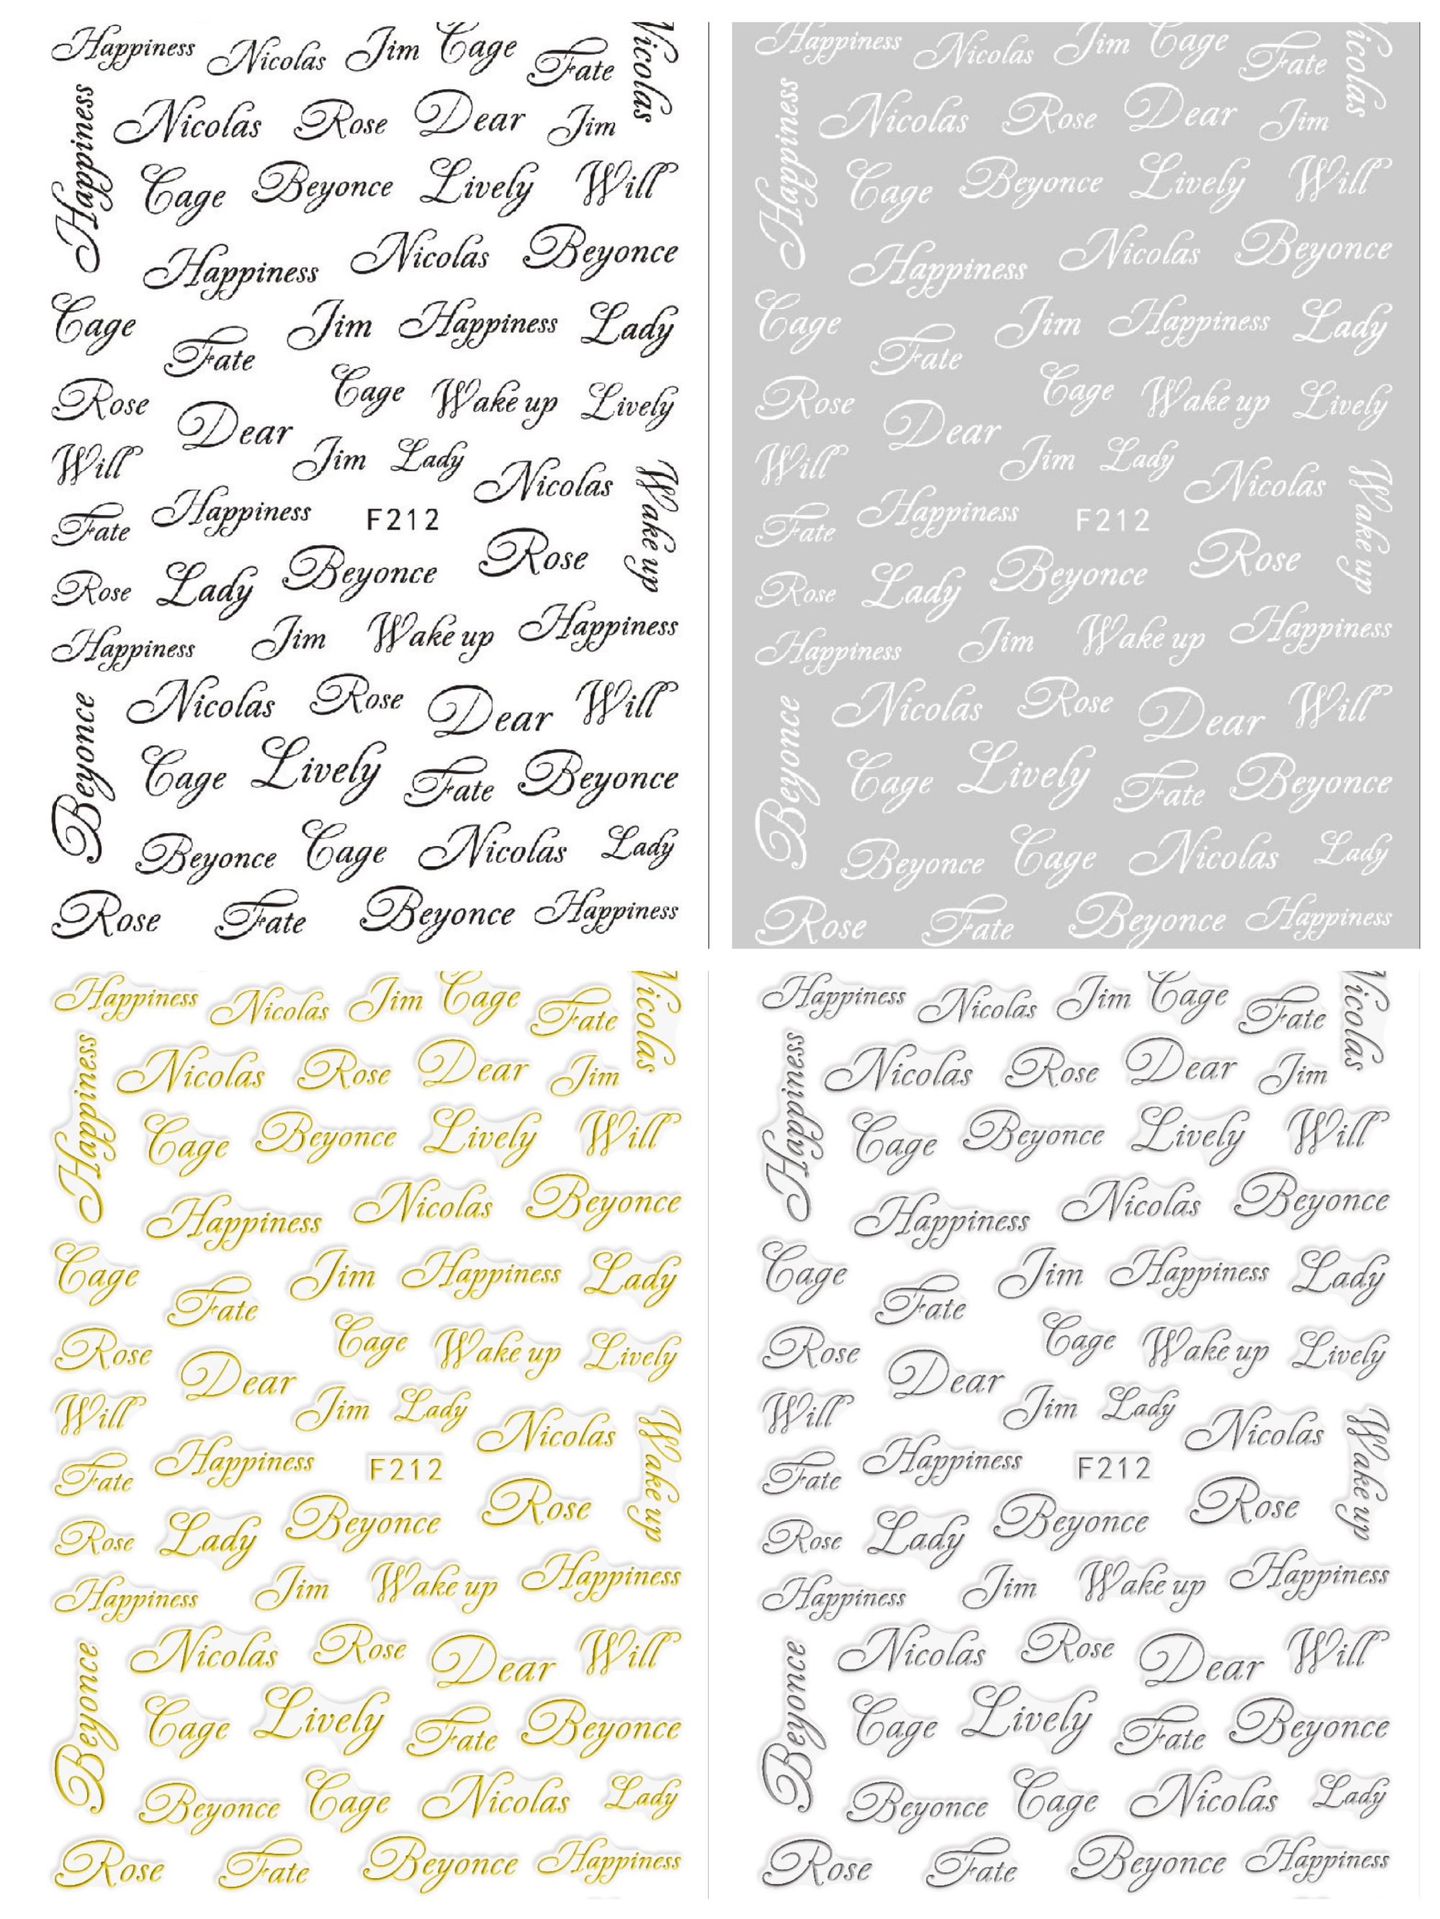 Happiness Nicolas Jim Cage Fate Nicolas
Happiness Nicolas Rose Dear Jim
Cage Beyonce Lively Will
Happiness Nicolas Beyonce
Cage Fate Jim Happiness Lady
Rose Dear Cage Wake up Lively
Will Jim Lady Nicolas Wake up
Fate Happiness F212 Rose
Rose Lady Beyonce
Happiness Jim Wake up Happiness
Beyonce Nicolas Rose Dear Will
Cage Lively Fate Beyonce
Beyonce Cage Nicolas Lady
Rose Fate Beyonce Happiness
Happiness Nicolas Jim Cage Fate Nicolas
Happiness Nicolas Rose Dear Jim
Cage Beyonce Lively Will
Happiness Nicolas Beyonce
Cage Fate Jim Happiness Lady
Rose Dear Cage Wake up Lively
Will Jim Lady Nicolas Wake up
Fate Happiness F212 Rose
Rose Lady Beyonce
Happiness Jim Wake up Happiness
Beyonce Nicolas Rose Dear Will
Cage Lively Fate Beyonce
Beyonce Cage Nicolas Lady
Rose Fate Beyonce Happiness
Happiness Nicolas Jim Cage Fate Nicolas
Happiness Nicolas Rose Dear Jim
Cage Beyonce Lively Will
Happiness Nicolas Beyonce
Cage Fate Jim Happiness Lady
Rose Dear Cage Wake up Lively
Will Jim Lady Nicolas Wake up
Fate Happiness F212 Rose
Rose Lady Beyonce
Happiness Jim Wake up Happiness
Beyonce Nicolas Rose Dear Will
Cage Lively Fate Beyonce
Beyonce Cage Nicolas Lady
Rose Fate Beyonce Happiness
Happiness Nicolas Jim Cage Fate Nicolas
Happiness Nicolas Rose Dear Jim
Cage Beyonce Lively Will
Happiness Nicolas Beyonce
Cage Fate Jim Happiness Lady
Rose Dear Cage Wake up Lively
Will Jim Lady Nicolas Wake up
Fate Happiness F212 Rose
Rose Lady Beyonce
Happiness Jim Wake up Happiness
Beyonce Nicolas Rose Dear Will
Cage Lively Fate Beyonce
Beyonce Cage Nicolas Lady
Rose Fate Beyonce Happiness